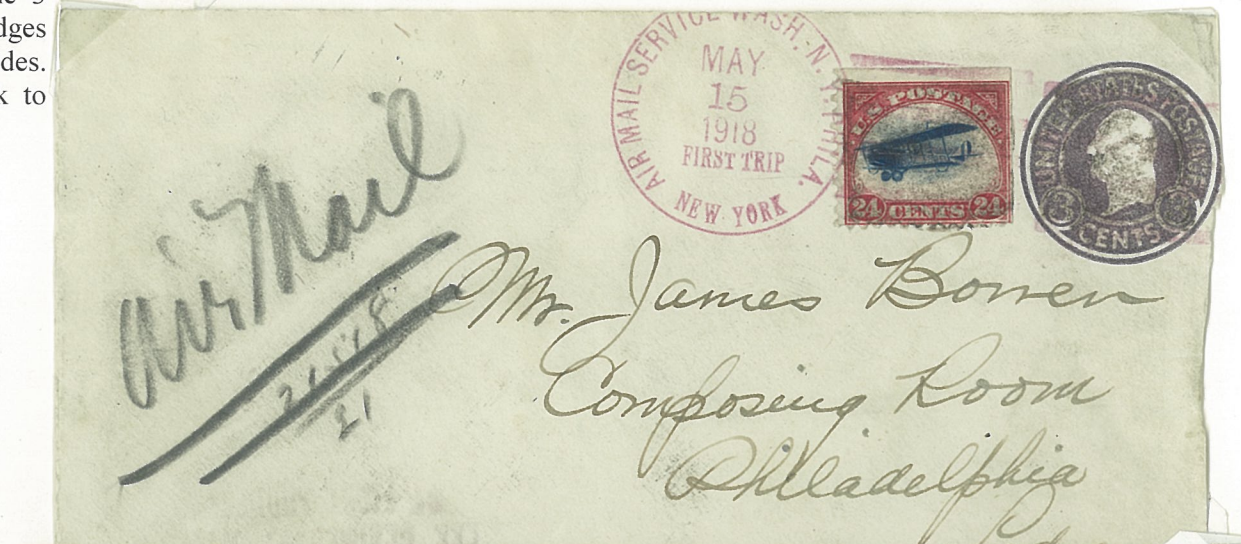 dges
des.
k to
AIR MAIL SERVICE WASH. N.Y. PHILA.
MAY
15
1918
FIRST TRIP
NEW YORK
U S POSTAGE
24 CENTS 24
UNITED STATES POSTAGE
3 CENTS 3
air Mail
21
Mr. James Bowen
Composing Room
Philadelphia